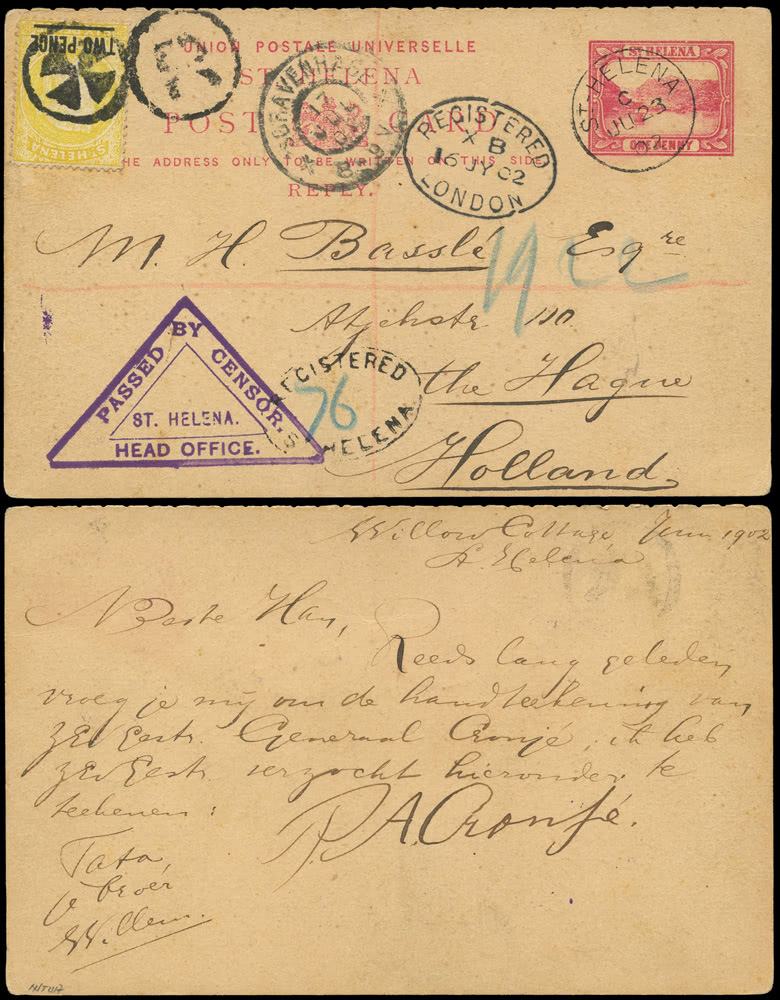 TWO PENCE
ST HELENA
UNION POSTALE UNIVERSELLE
ST HELENA
POST CARD
THE ADDRESS ONLY TO BE WRITTEN ON THIS SIDE
REPLY.
'SGRAVENHAGE
ST HELENA
ONE PENNY
ST. HELENA
C
JU 23
02
REGISTERED
X B
16 JY 02
LONDON
M. H. Basslé Esqre
1922
Atjehstr 110
the Hague
Holland
PASSED BY CENSOR.
ST. HELENA.
HEAD OFFICE.
REGISTERED
76
ST HELENA
Willow Cottage, Juni 1902
St. Helena
Beste Han,
Reeds lang geleden
vroeg je mij om de handteekening van
ZEd Gestr. Generaal Cronjé, ik heb
ZEd Gestr. verzocht hieronder te
teekenen:
P. A. Cronjé.
Tata,
je broer
Willem.